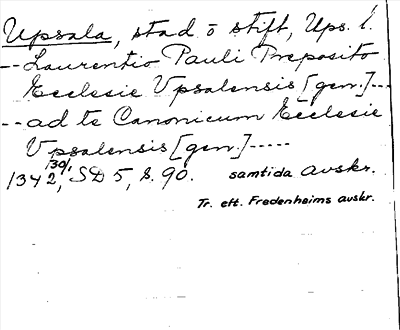 Upsala, stad o stift, Ups. l.
-- Laurentio Pauli Preposito
Ecclesie Vpsalensis [gen.]---
-- ad te Canonicum Ecclesie
Vpsalensis [gen.]-----
1342, 30/1, SD 5, s. 90. samtida avskr.
Tr. eft. Fredenheims avskr.